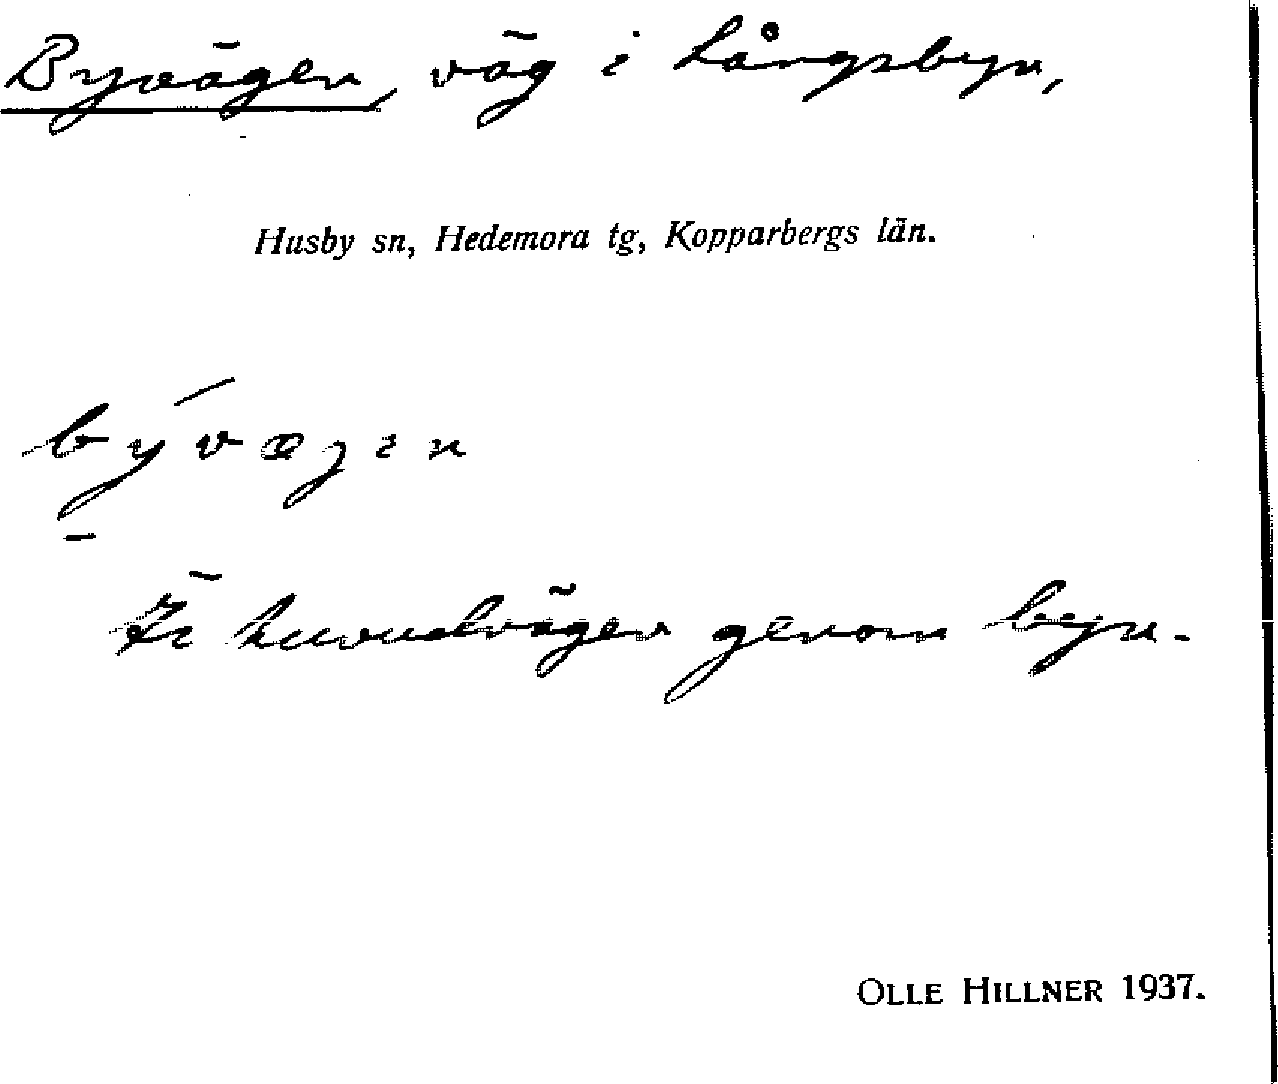 Byvägen, väg i Långsbyn,
Husby sn, Hedemora tg, Kopparbergs län.
bývægen
Är huvudvägen genom byn.
OLLE HILLNER 1937.